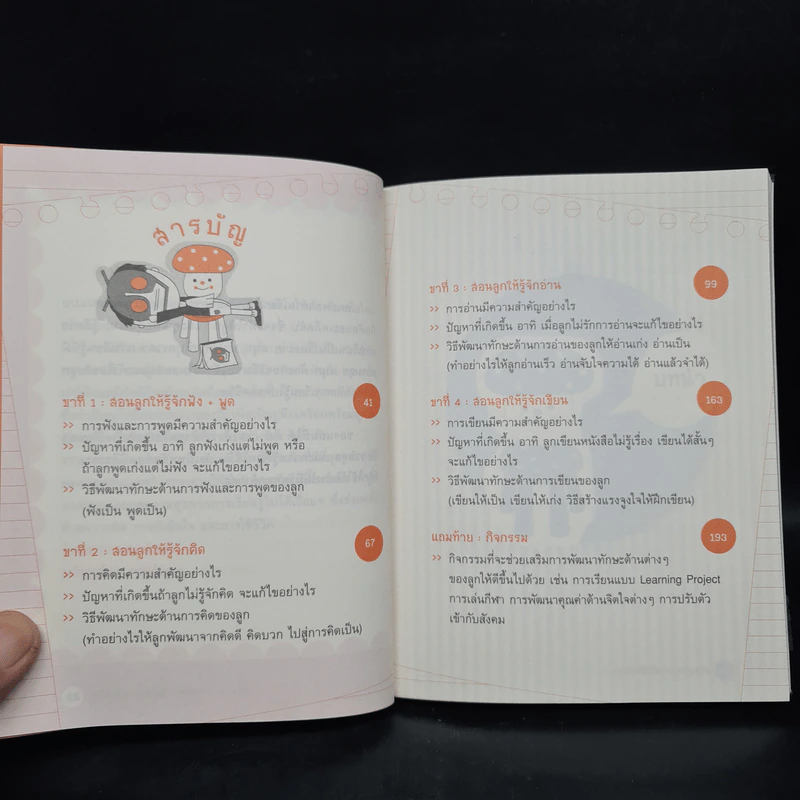 สารบัญ
ขาที่ 1 : สอนลูกให้รู้จักฟัง + พูด
41
>> การฟังและการพูดมีความสำคัญอย่างไร
>> ปัญหาที่เกิดขึ้น อาทิ ลูกฟังเก่งแต่ไม่พูด หรือ
ถ้าลูกพูดเก่งแต่ไม่ฟัง จะแก้ไขอย่างไร
>> วิธีพัฒนาทักษะด้านการฟังและการพูดของลูก
(ฟังเป็น พูดเป็น)
ขาที่ 2 : สอนลูกให้รู้จักคิด
67
>> การคิดมีความสำคัญอย่างไร
>> ปัญหาที่เกิดขึ้นถ้าลูกไม่รู้จักคิด จะแก้ไขอย่างไร
>> วิธีพัฒนาทักษะด้านการคิดของลูก
(ทำอย่างไรให้ลูกพัฒนาจากคิดดี คิดบวก ไปสู่การคิดเป็น)
ขาที่ 3 : สอนลูกให้รู้จักอ่าน
99
>> การอ่านมีความสำคัญอย่างไร
>> ปัญหาที่เกิดขึ้น อาทิ เมื่อลูกไม่รักการอ่านจะแก้ไขอย่างไร
>> วิธีพัฒนาทักษะด้านการอ่านของลูกให้อ่านเก่ง อ่านเป็น
(ทำอย่างไรให้ลูกอ่านเร็ว อ่านจับใจความได้ อ่านแล้วจำได้)
ขาที่ 4 : สอนลูกให้รู้จักเขียน
163
>> การเขียนมีความสำคัญอย่างไร
>> ปัญหาที่เกิดขึ้น อาทิ ลูกเขียนหนังสือไม่รู้เรื่อง เขียนได้สั้นๆ
จะแก้ไขอย่างไร
>> วิธีพัฒนาทักษะด้านการเขียนของลูก
(เขียนให้เป็น เขียนให้เก่ง วิธีสร้างแรงจูงใจให้ฝึกเขียน)
แถมท้าย : กิจกรรม
193
>> กิจกรรมที่จะช่วยเสริมการพัฒนาทักษะด้านต่างๆ
ของลูกให้ดีขึ้นไปด้วย เช่น การเรียนแบบ Learning Project
การเล่นกีฬา การพัฒนาคุณค่าด้านจิตใจต่างๆ การปรับตัว
เข้ากับสังคม